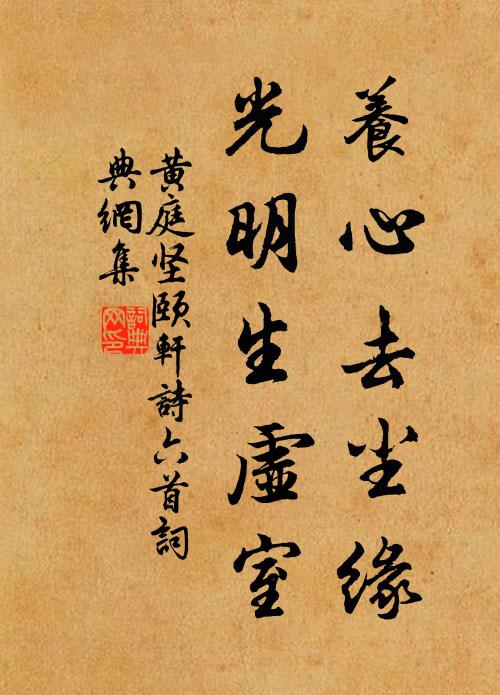 養心去尘緣
光明生虛室
黄庭坚頤軒詩六首詞
典網集
詞典
网印